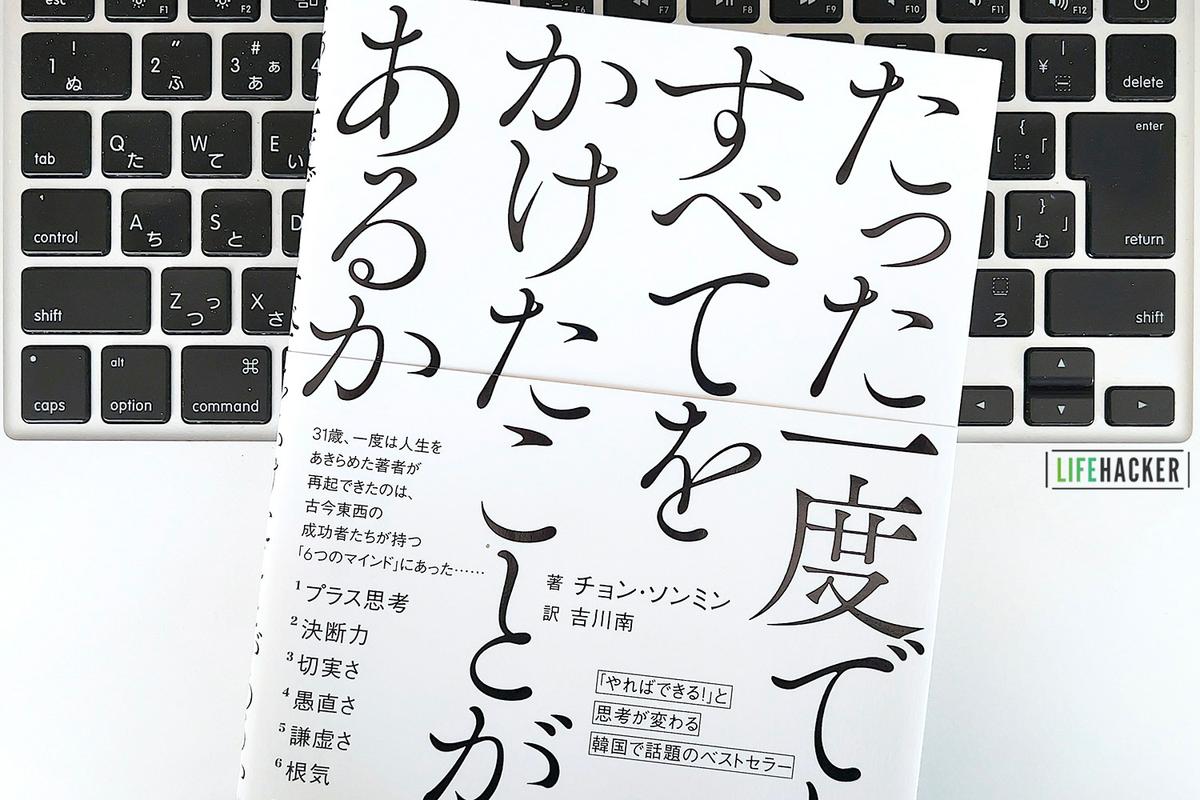 esc F1 F2 F6 F7 F8 F9 F10 F11 F12
! 1 ぬ
" 2 ふ
# 3 ぁ あ
~
| ¥ ー
delete
tab
Q た
W て
E い
{ [ ゜ 「
enter return
control
A ち
S と
D
} ] む 」
shift
Z っ つ
X さ
ろ
shift
caps
alt option
⌘ command
たった一度で
すべてを
かけたことが
あるか
31歳、一度は人生を
あきらめた著者が
再起できたのは、
古今東西の
成功者たちが持つ
「6つのマインド」にあった……
1 プラス思考
2 決断力
3 切実さ
4 愚直さ
5 謙虚さ
6 根気
著 チョン・ソンミン
訳 吉川南
「やればできる!」と
思考が変わる
韓国で話題のベストセラー
LIFEHACKER